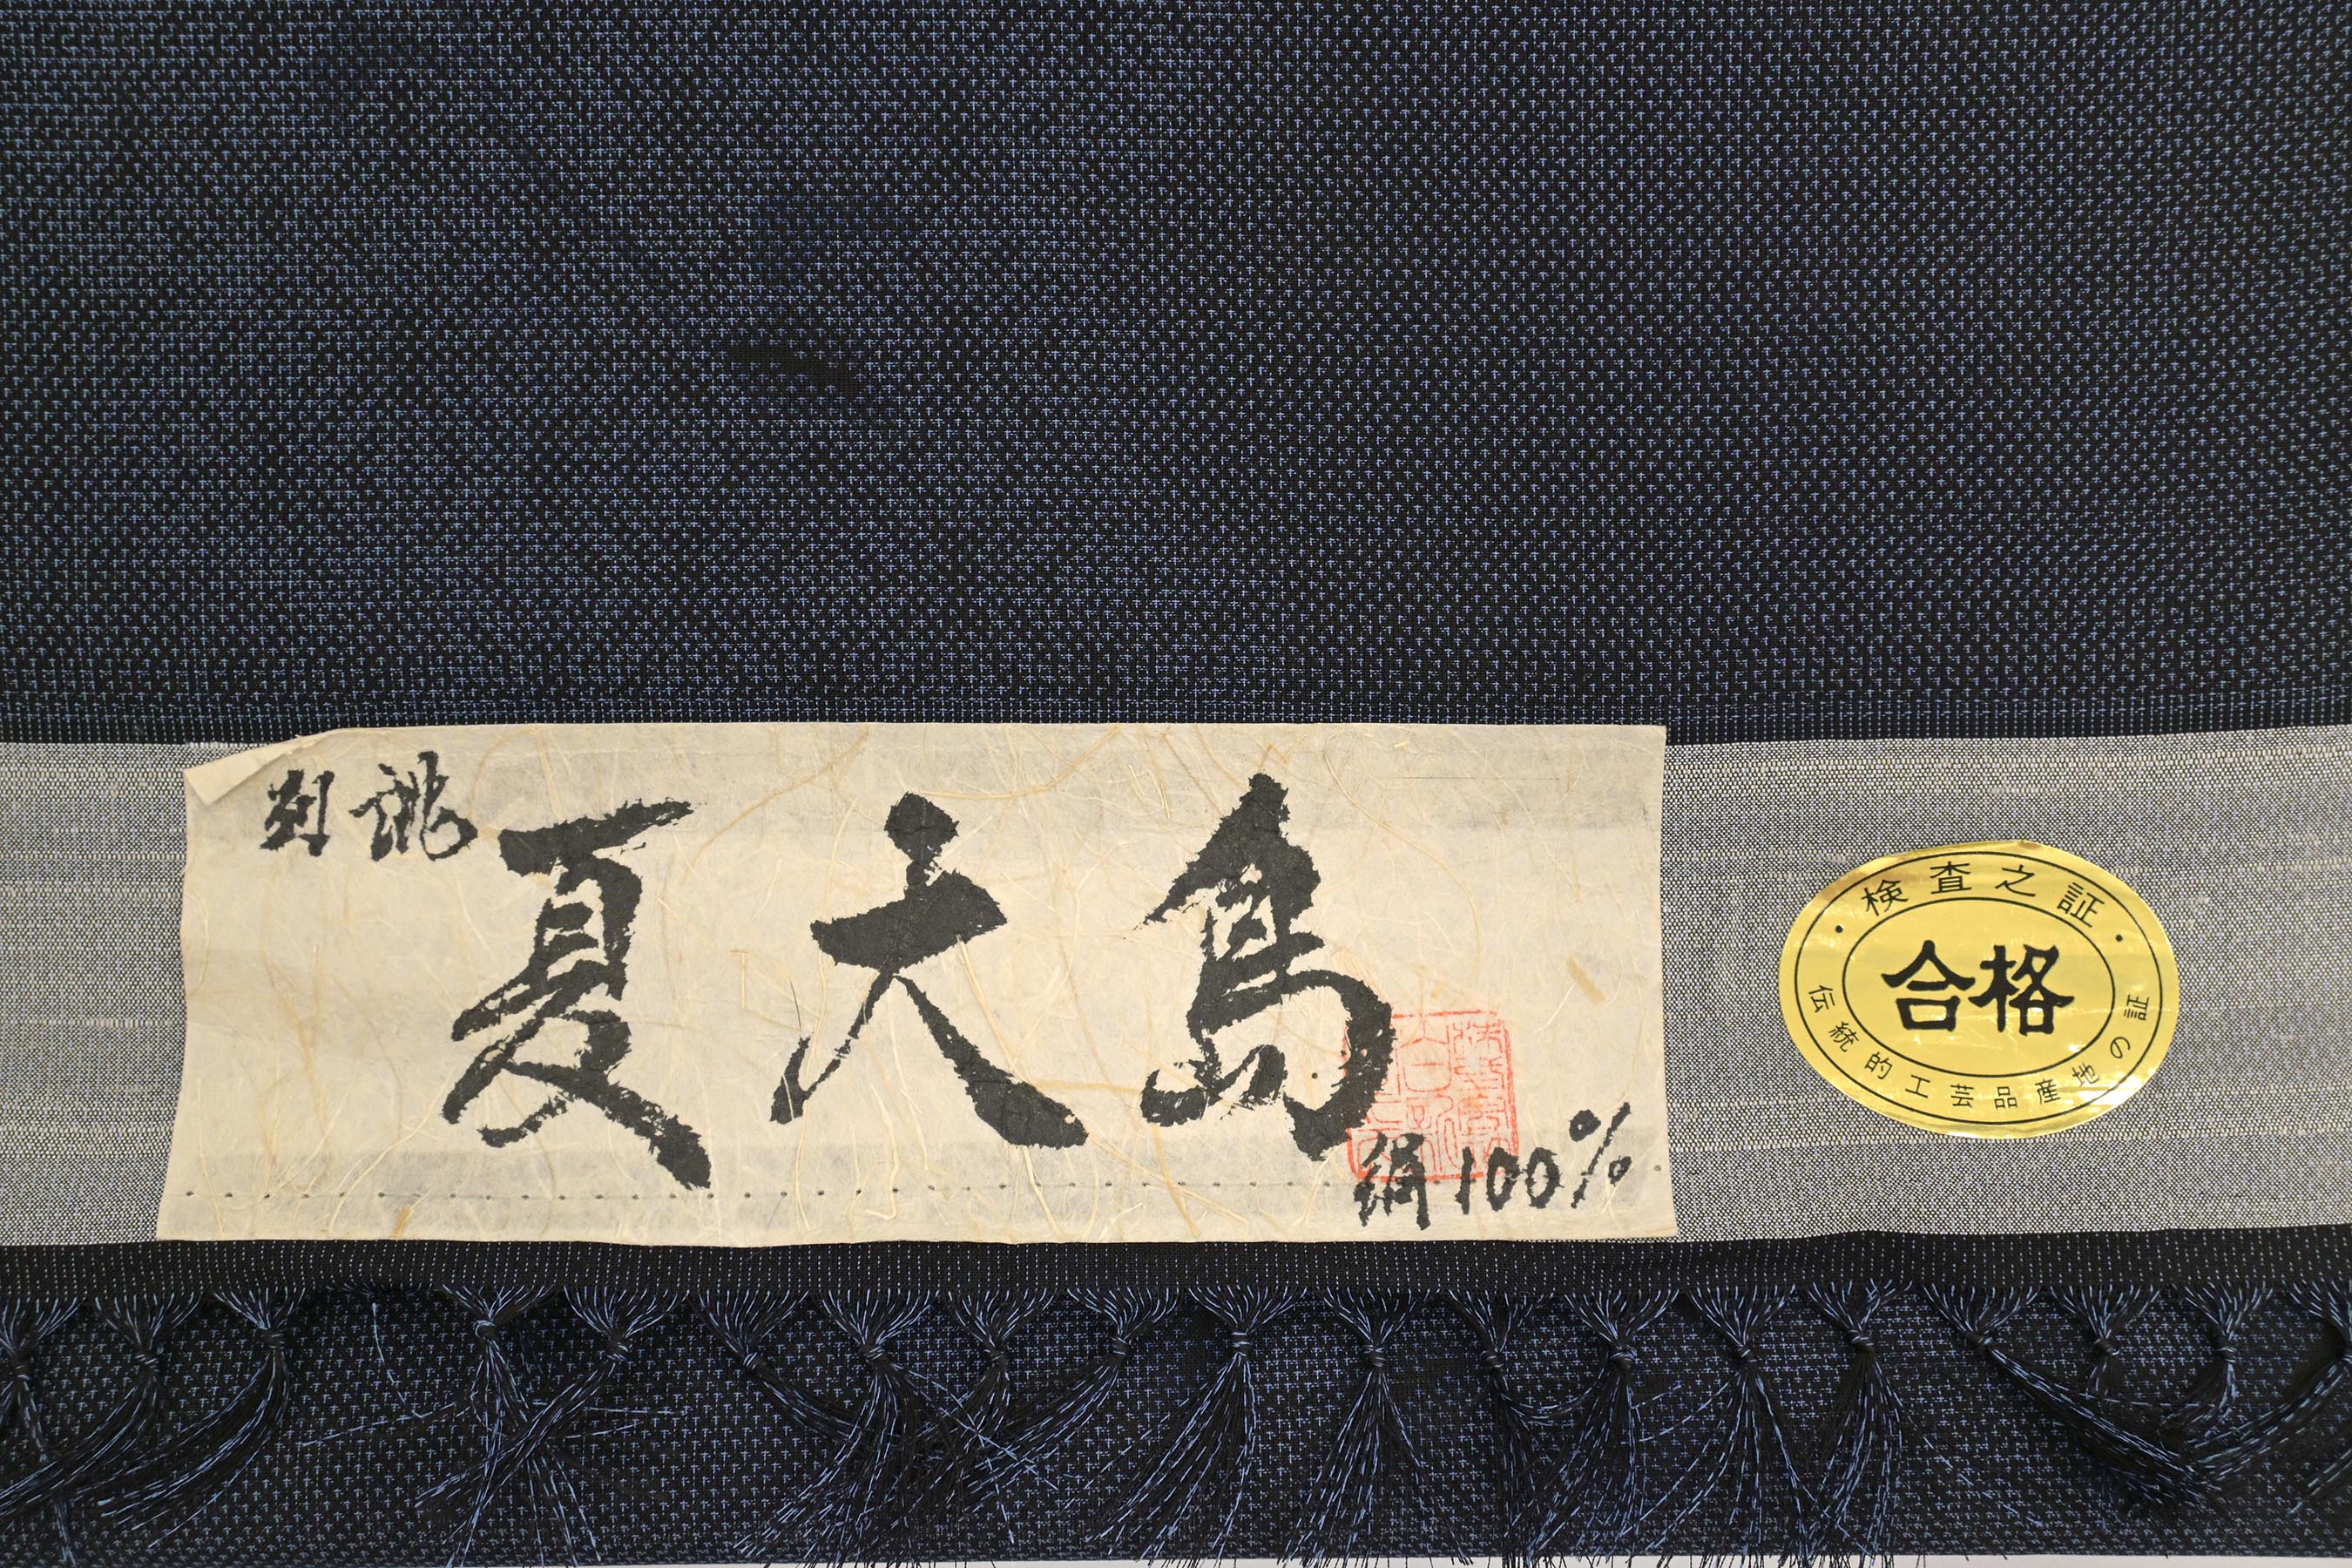 別誂
夏大島
絹100%
検査之証
合格
伝統的工芸品産地の証